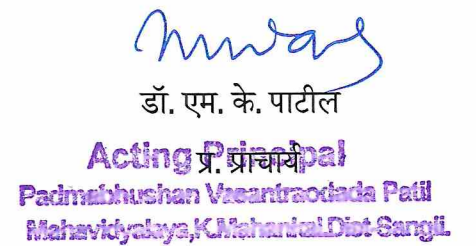 डॉ. एम. के. पाटील
प्र. प्राचार्य
Acting Principal
Padmabhushan Vasantraodada Patil
Mahavidyalaya,K.Mahankal.Dist-Sangli.